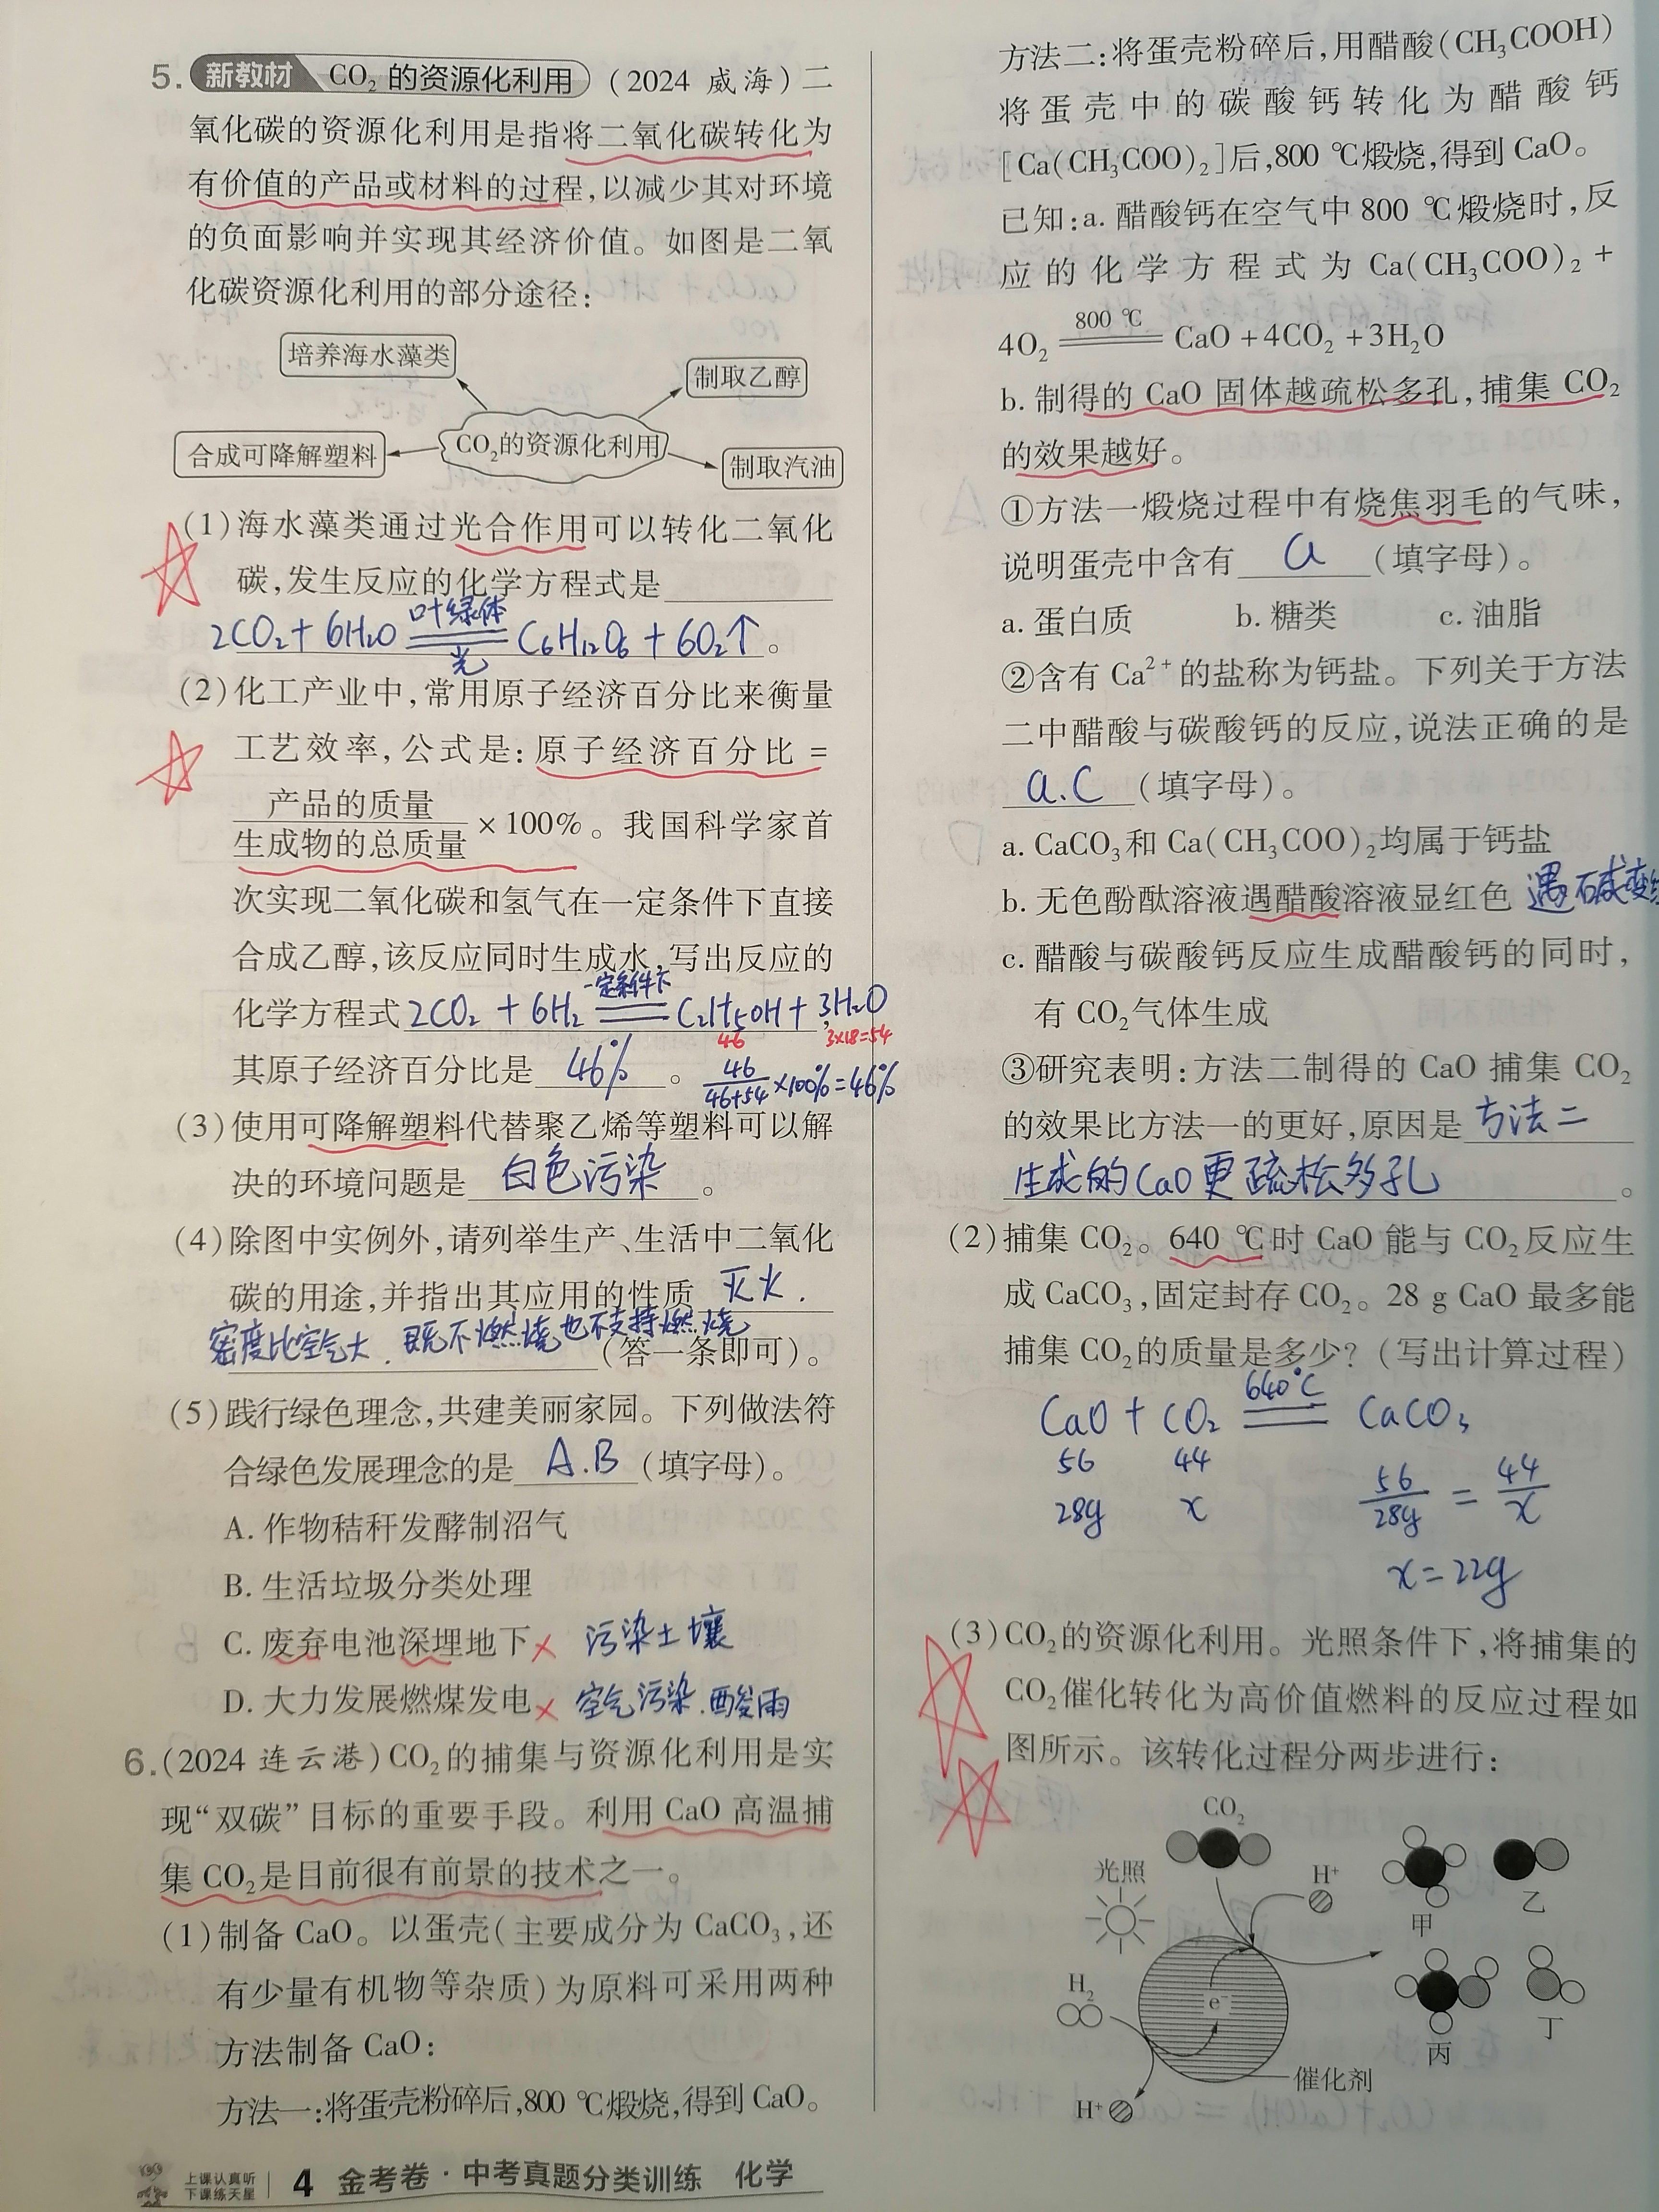 5. 新教材 CO₂的资源化利用 (2024 威海)二
氧化碳的资源化利用是指将二氧化碳转化为
有价值的产品或材料的过程,以减少其对环境
的负面影响并实现其经济价值。如图是二氧
化碳资源化利用的部分途径:
培养海水藻类
制取乙醇
合成可降解塑料
CO₂的资源化利用
制取汽油
(1)海水藻类通过光合作用可以转化二氧化
碳,发生反应的化学方程式是
2CO₂+6H₂O 叶绿体 ══ 光 C₆H₁₂O₆+6O₂↑。
(2)化工产业中,常用原子经济百分比来衡量
工艺效率,公式是:原子经济百分比=
产品的质量
生成物的总质量
×100%。我国科学家首
次实现二氧化碳和氢气在一定条件下直接
合成乙醇,该反应同时生成水,写出反应的
化学方程式 2CO₂+6H₂ 一定条件下 ══ C₂H₅OH+3H₂O,
46 3×18=54
其原子经济百分比是 46% 。 46/46+54 ×100%=46%
(3)使用可降解塑料代替聚乙烯等塑料可以解
决的环境问题是 白色污染 。
(4)除图中实例外,请列举生产、生活中二氧化
碳的用途,并指出其应用的性质 灭火.
密度比空气大.既不燃烧也不支持燃烧 (答一条即可)。
(5)践行绿色理念,共建美丽家园。下列做法符
合绿色发展理念的是 A.B (填字母)。
A. 作物秸秆发酵制沼气
B. 生活垃圾分类处理
C. 废弃电池深埋地下 × 污染土壤
D. 大力发展燃煤发电 × 空气污染.酸雨
6.(2024 连云港)CO₂的捕集与资源化利用是实
现“双碳”目标的重要手段。利用 CaO 高温捕
集 CO₂是目前很有前景的技术之一。
(1)制备 CaO。以蛋壳(主要成分为 CaCO₃,还
有少量有机物等杂质)为原料可采用两种
方法制备 CaO:
方法一:将蛋壳粉碎后,800 ℃煅烧,得到 CaO。
上课认真听
下课练天星
4 金考卷·中考真题分类训练 化学
方法二:将蛋壳粉碎后,用醋酸(CH₃COOH)
将蛋壳中的碳酸钙转化为醋酸钙
[Ca(CH₃COO)₂]后,800 ℃煅烧,得到 CaO。
已知:a. 醋酸钙在空气中 800 ℃煅烧时,反
应的化学方程式为 Ca(CH₃COO)₂+
4O₂ 800 ℃ ══ CaO+4CO₂+3H₂O
b. 制得的 CaO 固体越疏松多孔,捕集 CO₂
的效果越好。
①方法一煅烧过程中有烧焦羽毛的气味,
说明蛋壳中含有 a (填字母)。
a. 蛋白质 b. 糖类 c. 油脂
②含有 Ca²⁺的盐称为钙盐。下列关于方法
二中醋酸与碳酸钙的反应,说法正确的是
a.c (填字母)。
a. CaCO₃和 Ca(CH₃COO)₂均属于钙盐
b. 无色酚酞溶液遇醋酸溶液显红色 遇碱变
c. 醋酸与碳酸钙反应生成醋酸钙的同时,
有 CO₂气体生成
③研究表明:方法二制得的 CaO 捕集 CO₂
的效果比方法一的更好,原因是 方法二
生成的CaO更疏松多孔 。
(2)捕集 CO₂。640 ℃时 CaO 能与 CO₂反应生
成 CaCO₃,固定封存 CO₂。28 g CaO 最多能
捕集 CO₂的质量是多少?(写出计算过程)
CaO+CO₂ 640℃ ══ CaCO₃
56 44
28g x
56/28g=44/x
x=22g
(3)CO₂的资源化利用。光照条件下,将捕集的
CO₂催化转化为高价值燃料的反应过程如
图所示。该转化过程分两步进行:
CO₂
光照
H⁺
甲
乙
H₂
e⁻
丙
丁
催化剂
H⁺